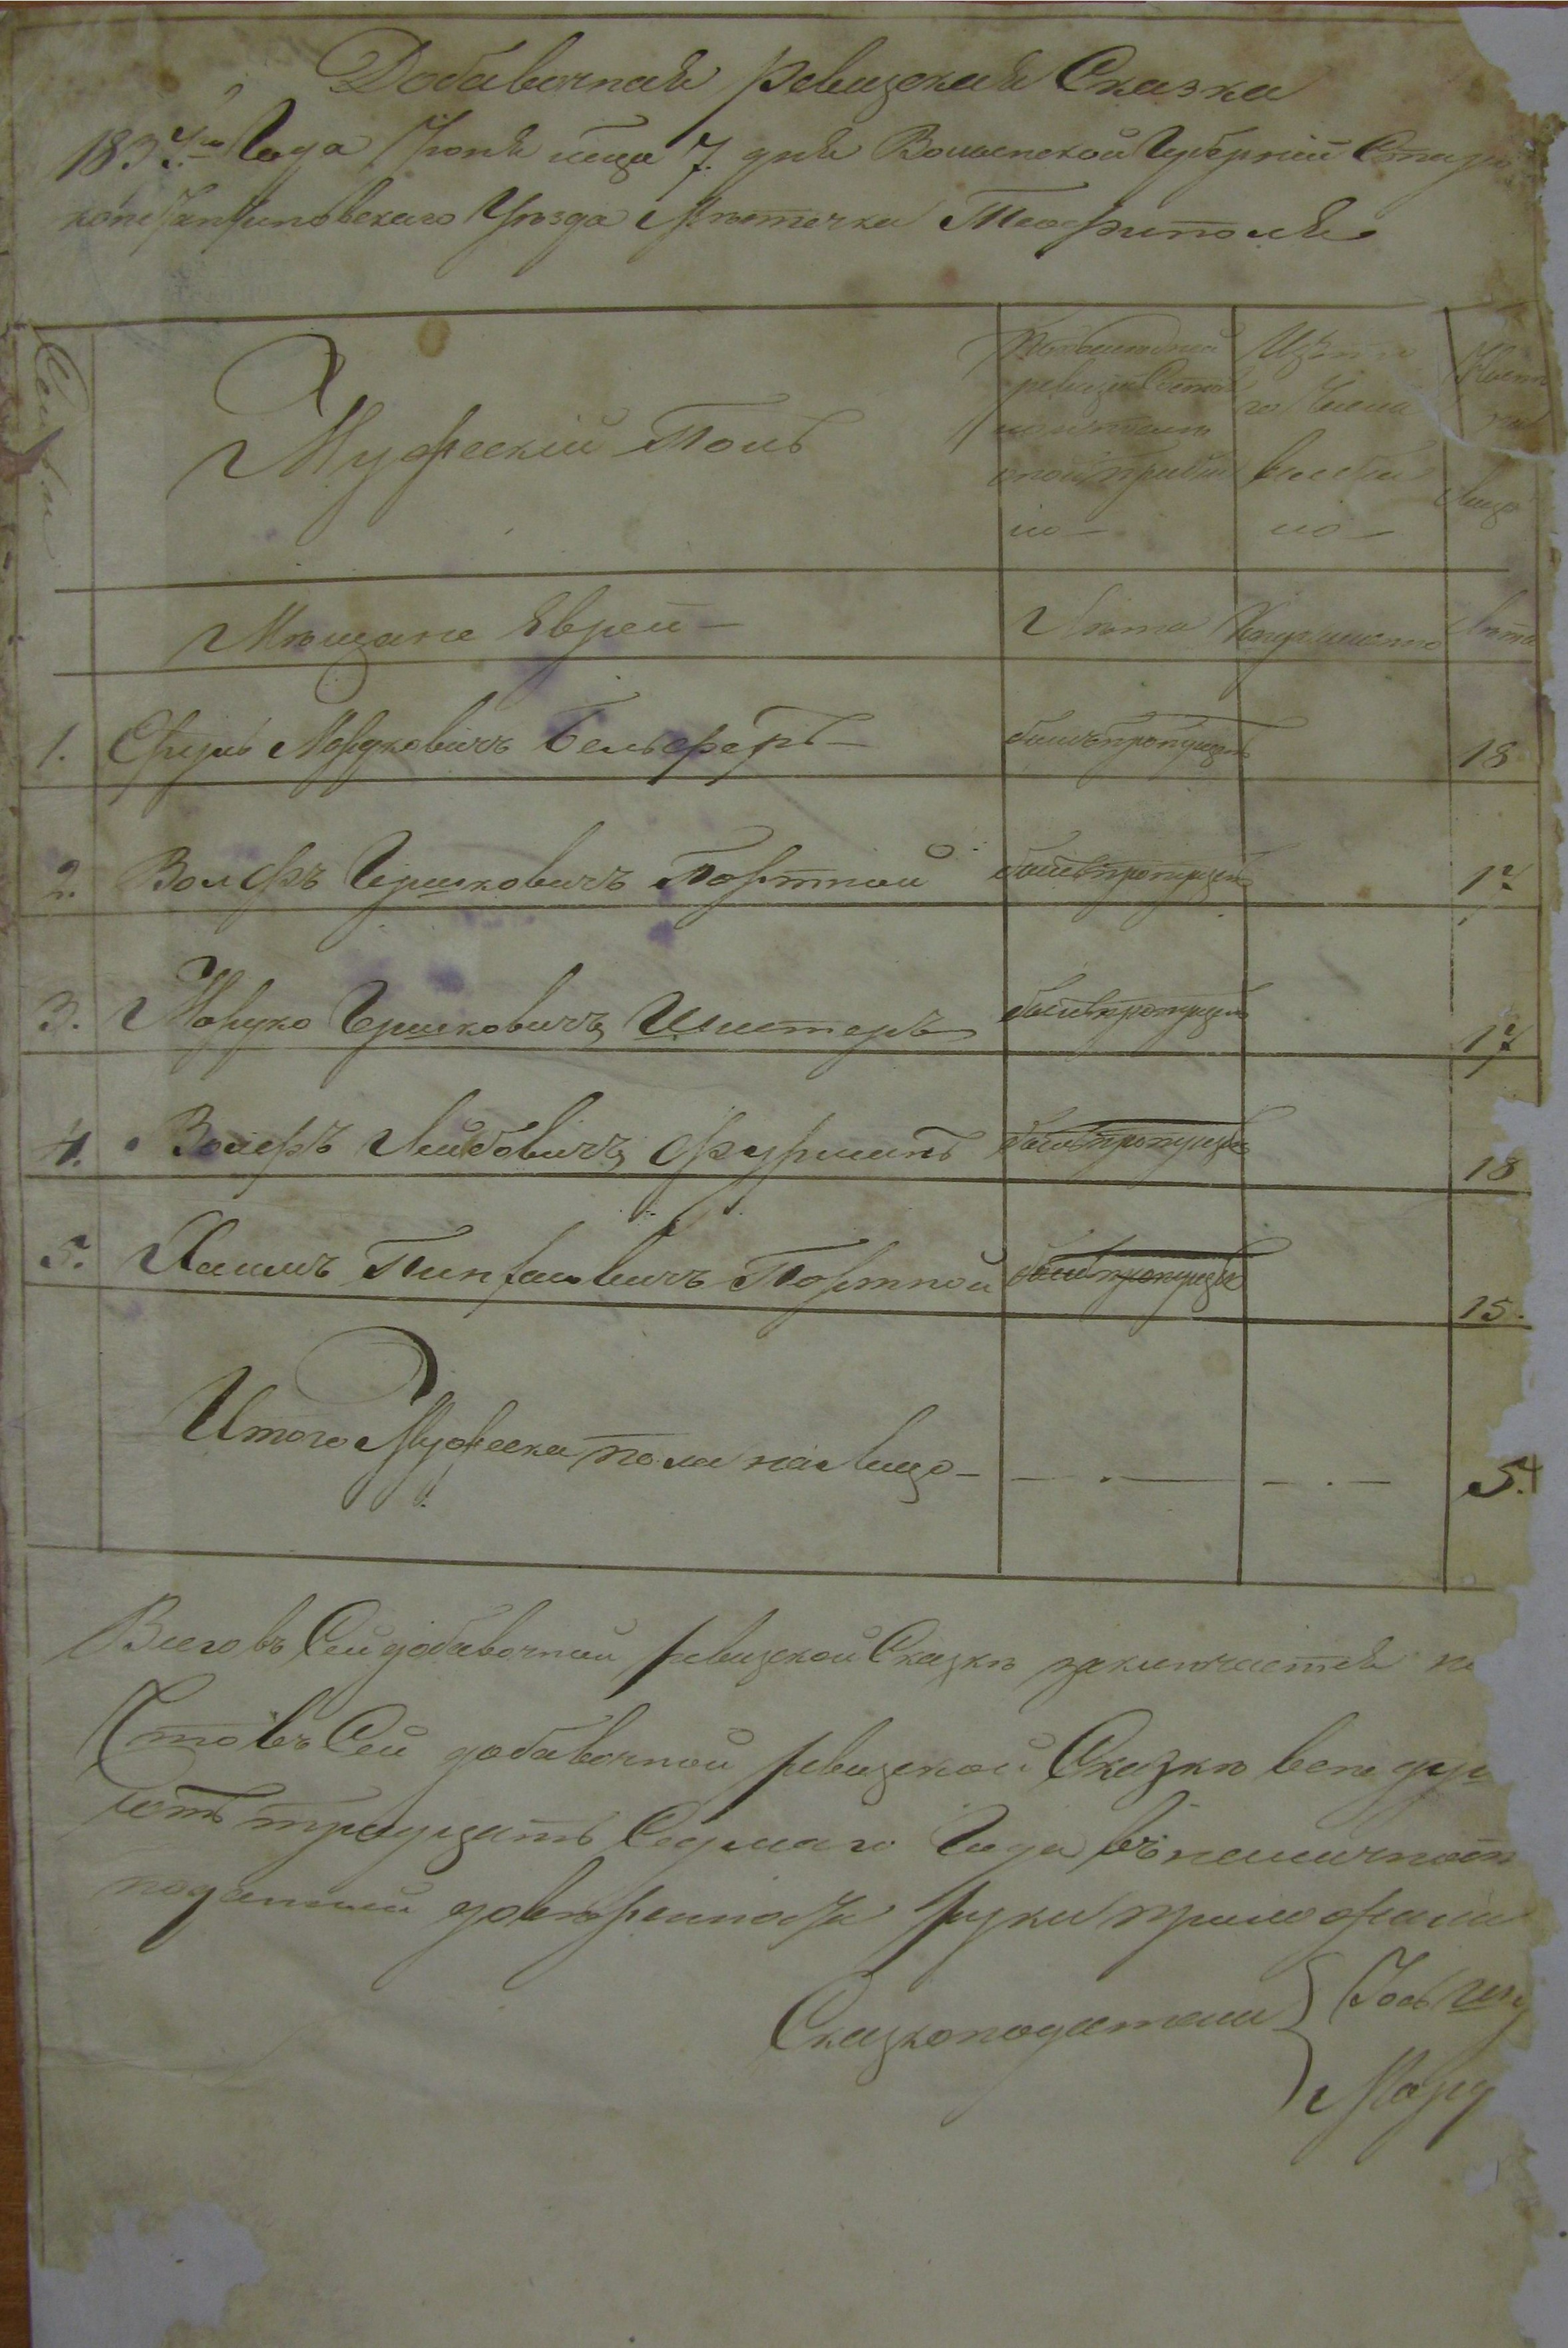 Добавочная Ревизская Сказка
1837го Года Июня мца 7. дня Волынской Губерніи Старо
константиновскаго Уѣзда Мѣстечка Теофиполя
Семьи
Мужескій Полъ
По последней
ревизіи Состоя
ло и после
оной прибы
ло —
Изъ то
го Числа
выбы
ло —
Ныне
на
лицо
Мѣщане Евреи —
Лѣта
Когда именно
Лѣта
1. Сруль Мордковичъ Бельферъ — былъ пропущенъ 18
2. Волфъ Гершковичъ Портной былъ пропущенъ 17
3. Мордко Гершковичъ Шистеръ былъ пропущенъ 17
4. Волфъ Лейбовичъ Фурманъ былъ пропущенъ 18
5. Хаимъ Пинхасовичъ Портной былъ пропущенъ 15.
Итого Мужеска пола на лицо — — . — — . — 5.
Всего въ Сей добавочной ревизской Сказкѣ заключается
Что въ Сей добавочной ревизской Сказкѣ все
сотъ тридцать Седмаго Года въ наличност
поданной довѣренности руки приложили
Сказкоподатели } Іось
Морд